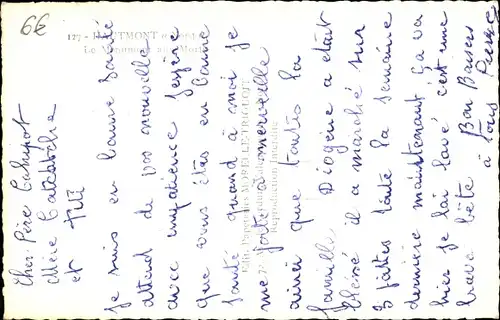 6€
127 - HAUTMONT (Nord)
Le Monument aux Morts
Cher Père
Mère
et Titi
je suis en bonne santé
attend de vos nouvelle
avec impatience j'espère
que vous êtes en bonne
santé quand à moi je
me porte à merveille
ainsi que toutes la
famille Diogène a était
blessé il a marché sur
3 pattes toute la semaine
dernière maintenant ça va
hier je l'ai lavé c'est une
brave bête Bon Baisers
à tous Pierre
Reproduction Interdite